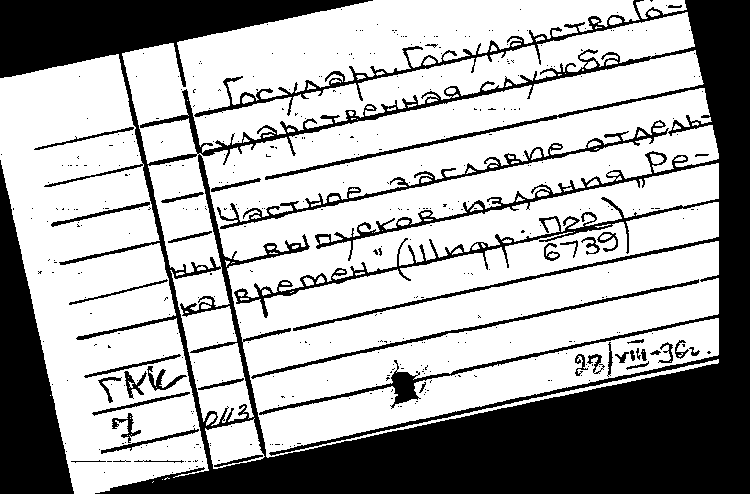 Государь. Государство. Го-
сударственная служба.
Частное заглавие отдель-
ных выпусков издания „Ре-
ка времен." (Шифр: П80
6739)
28/VIII-96г.
ГАК
7